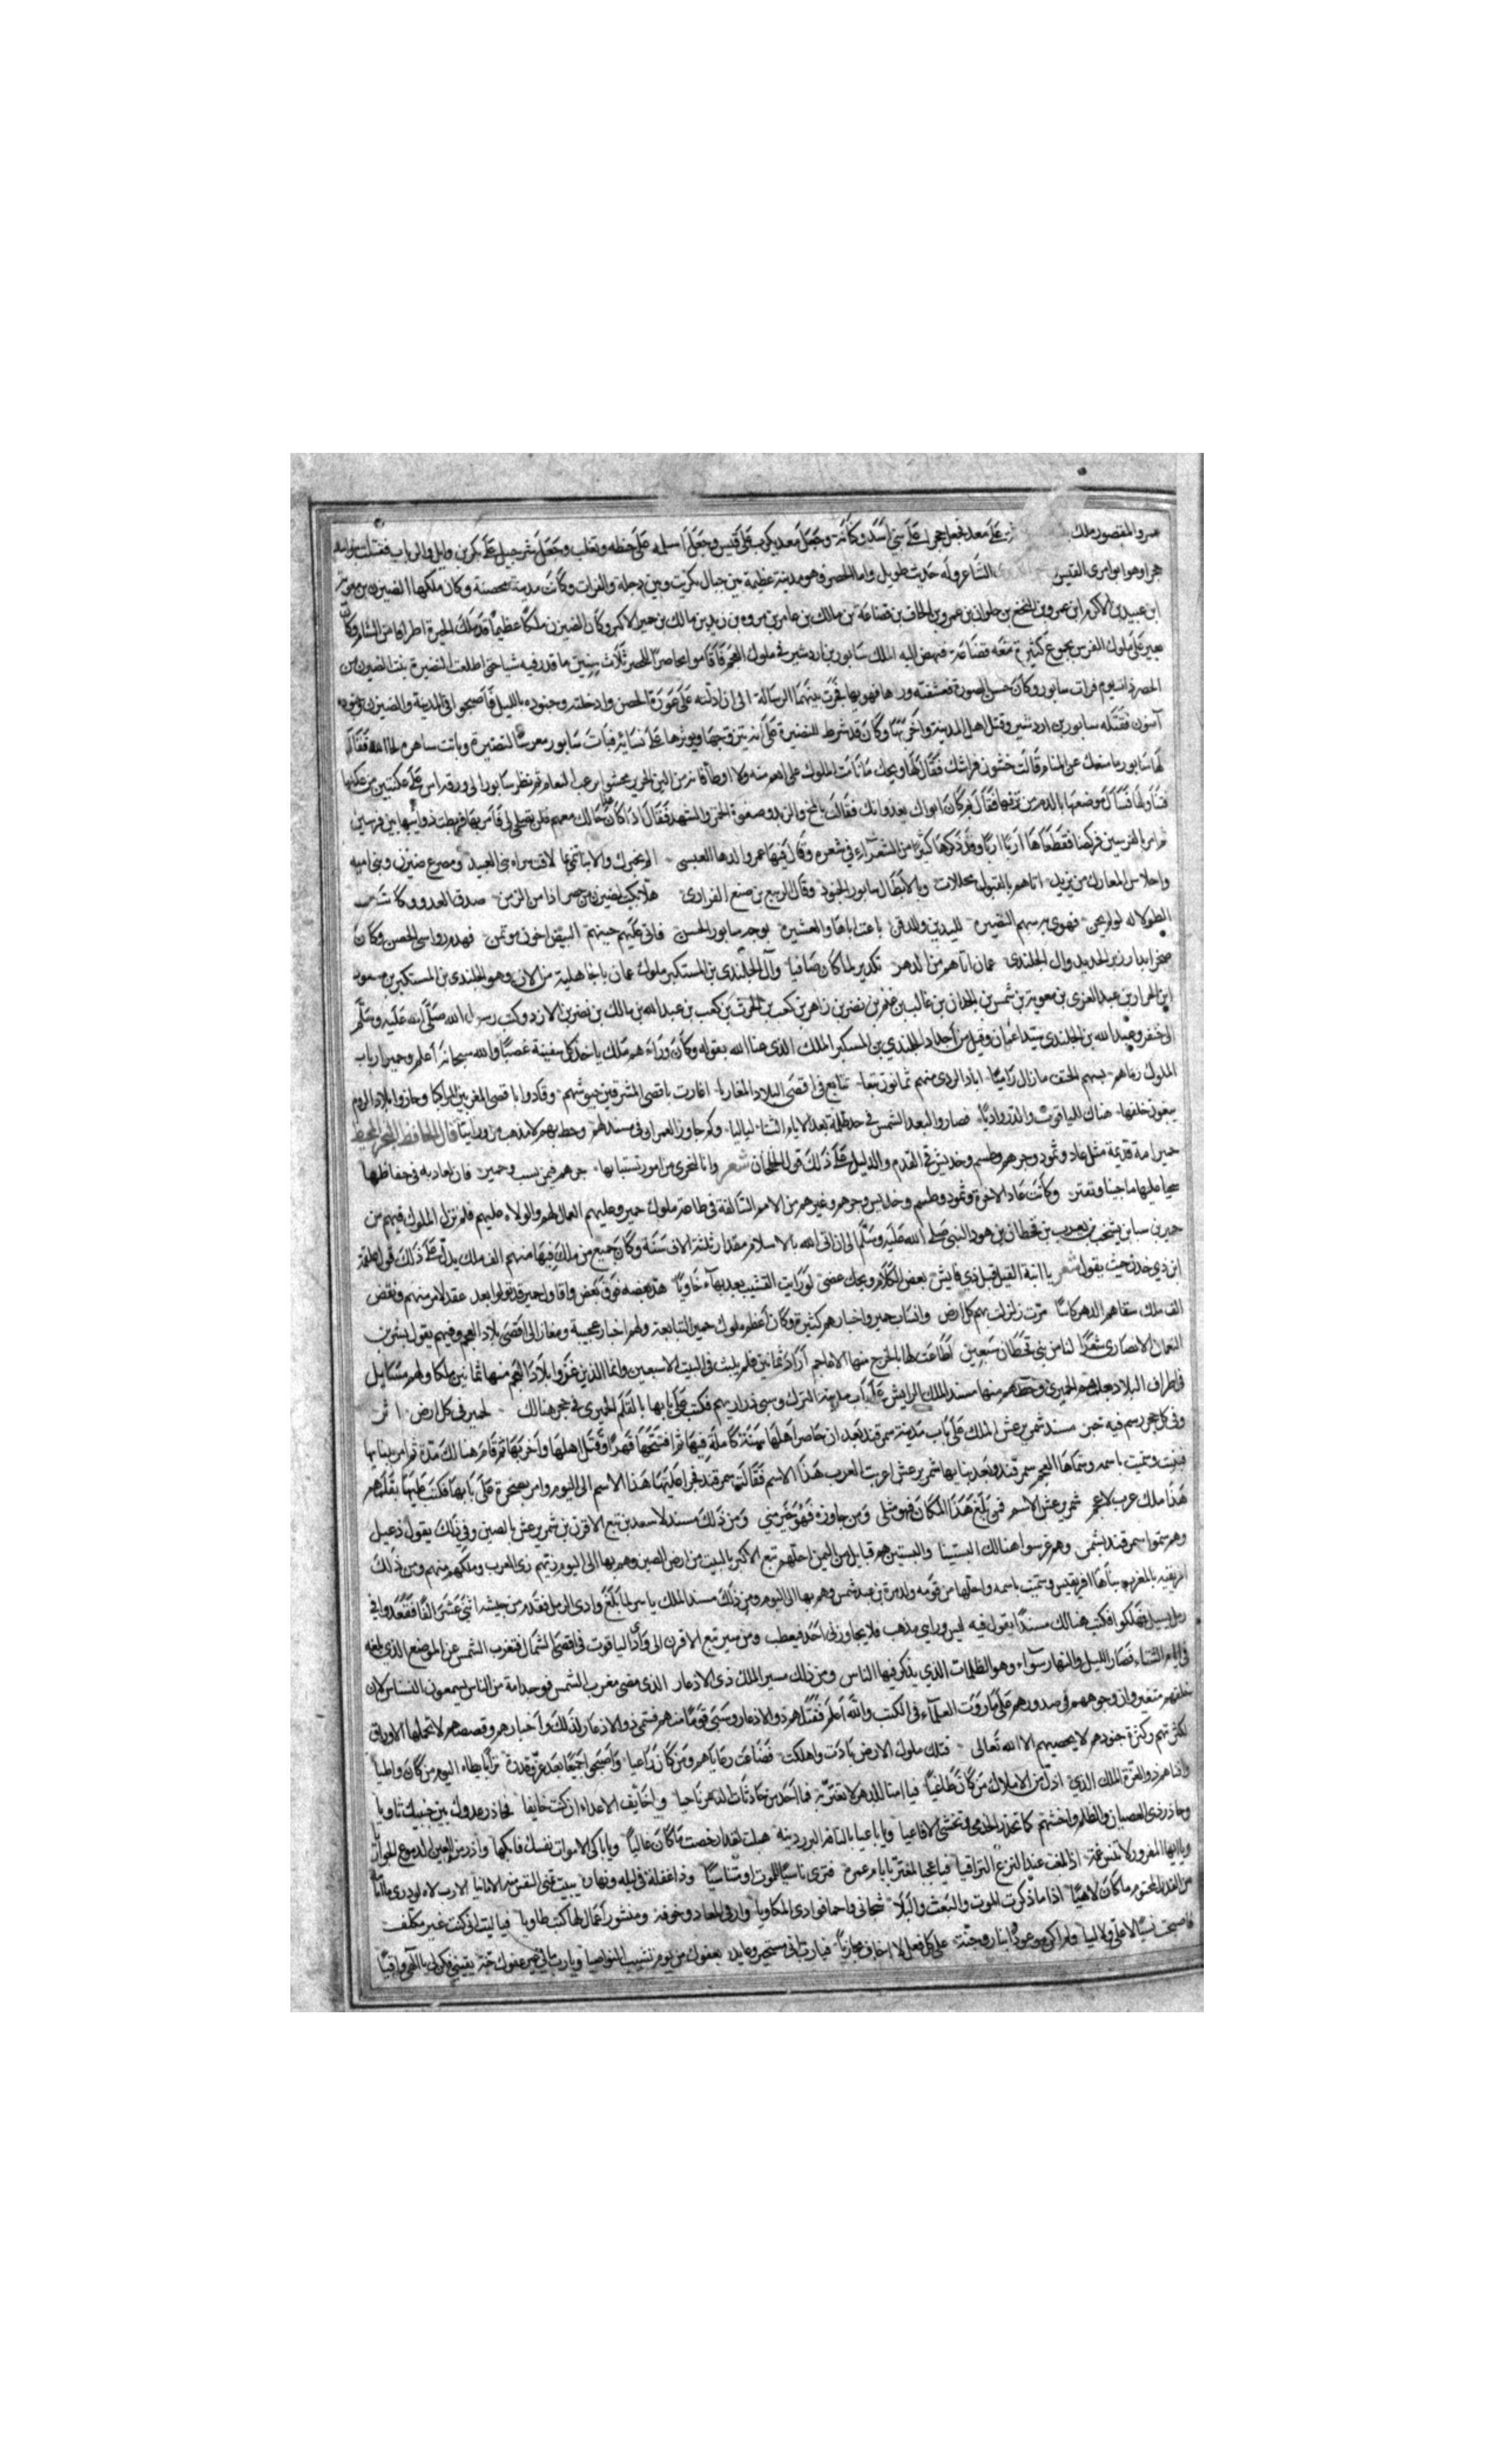 عمرو المقصور ملك على معد فجعل حجرا على بني اسد وكنانة وجعل معديكرب على قيس وجعل سلمه على حنظله وتغلب وجعل شرحبيل على بكر بن وايل والرباب فقتلت بنو اسد
حجرا وهو ابو امرى القيس الشاعر وله حديث طويل واما الحضر فهو مدينة عظيمة بين جبال تكريت وبين دجله والفرات وكانت مدينة محصنة وكان ملكها الضيزن بن معوية
ابن عبيد بن الاكرم ابن عمرو بن النخع بن حلوان بن عمرو بن الحاف بن قضاعة بن مالك بن عامر بن مره بن زيد بن مالك بن حمير الاكبر وكان الضيزن ملكا عظيما قد ملك الجيرة اطرافا من الشام وكان
يعير على ملوك الفرس بجموع كثيرة معه قضاعة فنهض اليه الملك سابور بن اردشير في ملوك العجم فاقاموا محاصرا للحضر ثلاث سنين ما قدر فيه شيا حتى اطلعت النضيرة بنت الضيزن من
الحصر ذات يوم فرات سابور وكان حسن الصورة فعشقته وراها فهويها فجرت بينهما الرسالة الى ان ادلته على عورة الحصن وادخلته وجنوده بالليل فاصبحوا في المدينة والضيزن وجنوده
آمنون فقتله سابور بن اردشير وقتل اهل المدينة واخربها وكان قد شرط للنضيرة على انه يتزوجها ويوثرها على نسائه فبات سابور معرسا للنضيرة وباتت ساهرة فقال
لها سابور ما منعك عن المنام قالت خشون فراشك فقال لها ويحك ما نامت الملوك على انعم منه ولا اوطا فانه من اللين الحرير محشو بزغب النعام ثم نظر سابور الى ورقة اس على عكنتين من عكنها
فتناولها فسال موضعها بالدم من ترفها فقال بم كان ابواك يغذوانك فقالت بالمخ والزبد وصفوة الخمر والشهد فقال اذا كان حالك معهم فلن تصلحي لي فامر بها فربطت ذوائبها بين فرسين
ثم امر بالفرسين فركضا فقطعاها اربا اربا وقد ذكرها كثير من الشعراء في شعرهم وقال فيها عمرو العبسى الم يحزنك والانبا تنمي بما لاقت سراه بني العبيد ومصرع ضيزن وبني ابيه
واحلاس المعارك من يزيد اتاهم بالفيول مجللات وبالابطال سابور الجنود وقال الربيع بن ضبع الفزاري هلا بكيت لضيزن من حصر اذا من الزمن صدق العدو وكا
الطولا له لو لم يخن فهوى بسهم النضيرة لليدين وللذقن باعت اباها والعشيرة بوجه سابور الحسن فاتى عليهم حينهم البيض اخون موتمن فهدم رواسي الحصن وكان
صخرا يدار زبر الحديد وال الجلندى عمان اتاهم من الدهر تكدير لما كان صافيا وآل الجلندى بن المستكبر ملوك عمان باجاهلية من الازد وهو الجلندى بن المستكبر بن مسعود
ابن الحرار بن عبد العزى بن معوية بن شمس بن الحدان بن غالب بن عثمن بن نصر بن زاهر بن كعب بن الحرث بن كعب بن عبد الله بن مالك بن نصر بن الازد وكتب رسول الله صلى الله عليه وسلم
الى جيفر وعبد الله بن الجلندى سيدا عمان وقيل من اجداد الجلندى بن المستكبر الملك الذى عنا الله بقوله وكان وراءهم ملك ياخذ كل سفينة غصبا والله سبحانه اعلم وحمير ارباب
الملوك رماهم بسهم الحتف ما زال راميا اباد الردى منهم ثمانون تبعا تتابع في اقصى البلاد المغاريا اغارت باقصى المشرقين جيوشهم وقادوا باقصى المغربين المذاكيا وجازوا بلاد الروم
يبغون خلفها هناك للياقوت والدر واديا فصاروا لبعد الشمس في حد ظلمة بعد الايام الشتا لياليا وكم جاوز العمران في مسند لهم وحط بهم لا مذهب من ورائيا قال الحافظ البحر المحيط
حمير امة قديمة مثل عاد وثمود وجرهم وطسم وجديس في القدم والدليل على ذلك قول اللجلجان شعر وانا لنجزى من امور تستبابها جرهم فيمن يسب وحمير فان لعاد به في حفاظها
سجيا عليها ما حيينا وتفتر وكانت عاد الاخرة وثمود وطسم وجديس وجرهم وغيرهم من الامم السالفة في طاعة ملوك حمير وعليهم العمال لهم والولاه عليهم فلم تزل الملوك فيهم من
حمير بن سبا بن يشجب بن يعرب بن قحطان بن هود النبي صلى الله عليه وسلم الى ان اتى الله بالاسلام مقدار ثلثة الاف سنة وكان جميع من ملك فيها منهم الف ملك يدل على ذلك قول علقمة
ابن ذي جدن حيث يقول شعر يا ابنة القيل قيل ذي فايش بعض الكلام ويحك غضي لو رايت القشيب بعد بهاء خاويا هد بعضه فوق بعض واقاول حمير قد تولوا بعد عقد لامر منهم ونقض
الف ملك سقاهم الدهر كاسا مرت زلزلت بهم كل ارض وانساب حمير واخبارهم كثيرة وكان اعظم ملوك حمير التبابعة ولهم اخبار عجيبة ومغاز الى اقصى بلاد العجم وفيهم يقول بشر بن
النعمان الانصاري شعرا لنا من بني قحطان سبعين اطاعت لها بالخرج منها الاعاجم اراد ثمانين فلم يلبث في البيت الا سبعين وانما الذين غزوا بلاد العجم منها ثمانين ملكا ولهم مسانيد
في اطراف البلاد بخطهم الحميري وخطهم منها مسند الملك الرايش على باب مدينة الترك وسبى ذراريهم فكتب على بابها بالقلم الحميري في حجر هنالك لحمير في كل ارض اثر
وفي كل حجر رسم فيه خبر مسند شمر يرعش الملك على باب مدينة سمرقند بعد ان حاصر اهلها سنة كاملة فيها ثم افتتحها قهرا وقتل اهلها واخربها ثم قام هنالك مدة ثم امر ببنايها
فبنيت وسميت باسمه وسماها العجم سمرقند وبعد بنايها شمر يرعش اعربت العرب هذا الاسم فقالت سمرقند فجرا عليها هذا الاسم الى اليوم وامر بصخرة على بابها فكتب عليها بقلمهم
هذا ملك عرب لا عجم شمر يرعش الاشم فمن بلغ هذا المكان فهو مثلى ومن جاوزه فهو خير مني ومن ذلك مسند لاسعد بن تبع الاقرن بن شمر يرعش بالصين وفي ذلك يقول دعبل
وهم سموا سمرقند بشمر وهم غرسوا هنالك التبتينا والتبتين هم قبايل من اليمن احلهم تبع الاكبر بالتبت من ارض الصين وهم بها الى اليوم زيهم زى العرب وملكهم منهم ومن ذلك
افريقيه بالمغرب بناها افريقيس وسميت باسمه واحلها من قومه ولد مرة بن عبد شمس وهم بها الى اليوم ومن ذلك مسند الملك ياسر لما بلغ وادى الرمل فقدم من جيشه اثني عشر الفا فقعدوا في
رمل يسيل فهلكوا فكتب هنالك مسندا يقول فيه ليس ورائى مذهب فلا يجاوزني احد فيعطب ومن سير تبع الاقرن الى وادى الياقوت في اقصى الشمال فتغرب الشمس عن الموضع الذي بلغه
في ايام الشتاء فصار الليل والنهار سواء وهو الظلمات الذي يذكر فيها الناس ومن ذلك مسير الملك ذى الاذعار الذى مضى مغرب الشمس فوجد امة من الناس يسمعون النسناس لان
خلقهم متغير وان وجوههم في صدورهم على ما روت العلماء في الكتب والله اعلم فقتلهم ذو الاذعار وسبى قوما منهم فسمى ذو الاذعار لذلك واخبارهم وقصصهم لا تحملها الاوراق
لكثرتهم وكثرة جنودهم لا يحصيهم الا الله تعالى فتلك ملوك الارض بادت واهلكت فضاعت رعاياهم ومن كان زاعيا واصبحوا جميعا بعد عز وقدرة ترابا يطاه اليوم من كان واطيا
وافناهم ذو العزة الملك الذي اذل من الاملاك من كان طاغيا فيا امنا للدهر لا تغترر به فما احد من حادثات الدهر ناجيا وخايف الاعداء ان كنت خايفا فحاذر عدوك بين جنبيك ثاويا
وحاذر ذى العصيان والظلم واخشهم كما تحذر الحمى وتخشى الافاعيا ويا بايعا بالنافز البر دينه هبلت لقد ارخصت ما كان غاليا ويا باكى الاموات نفسك فابكها واذر من العين الدموع الجوازيا
ويا ايها المغرور لا تنس غمة اذا بلغت عند النزع التراقيا فيا عجبا لمغتر بايام عمره فترى ناسيا للموت او متناسيا وذا غفلة في ليله ونهاره يبيت تمني النفس منه الامانيا الا رب لاه لو درى ما امامه
من القدر المحتوم ما كان لاهيا اذا ما ذكرت الموت والبعث والبلا شجاني فاحما فوادى المكاويا وارى المعاد وخوفه ومنشور اعمال لها كنت طاويا فيا ليت اني كنت غير مكلف
فاصبحت نسيا لا علي ولا ليا ولم اك موعودا بنار وجنة على كل فعل لا اخاف مجازيا فيا رب اني مستجير وعايد بعفوك من يوم تشيب النواصيا ويا رب ما لي غير عفوك جنة يقيني فكن لي يا الهى واقيا